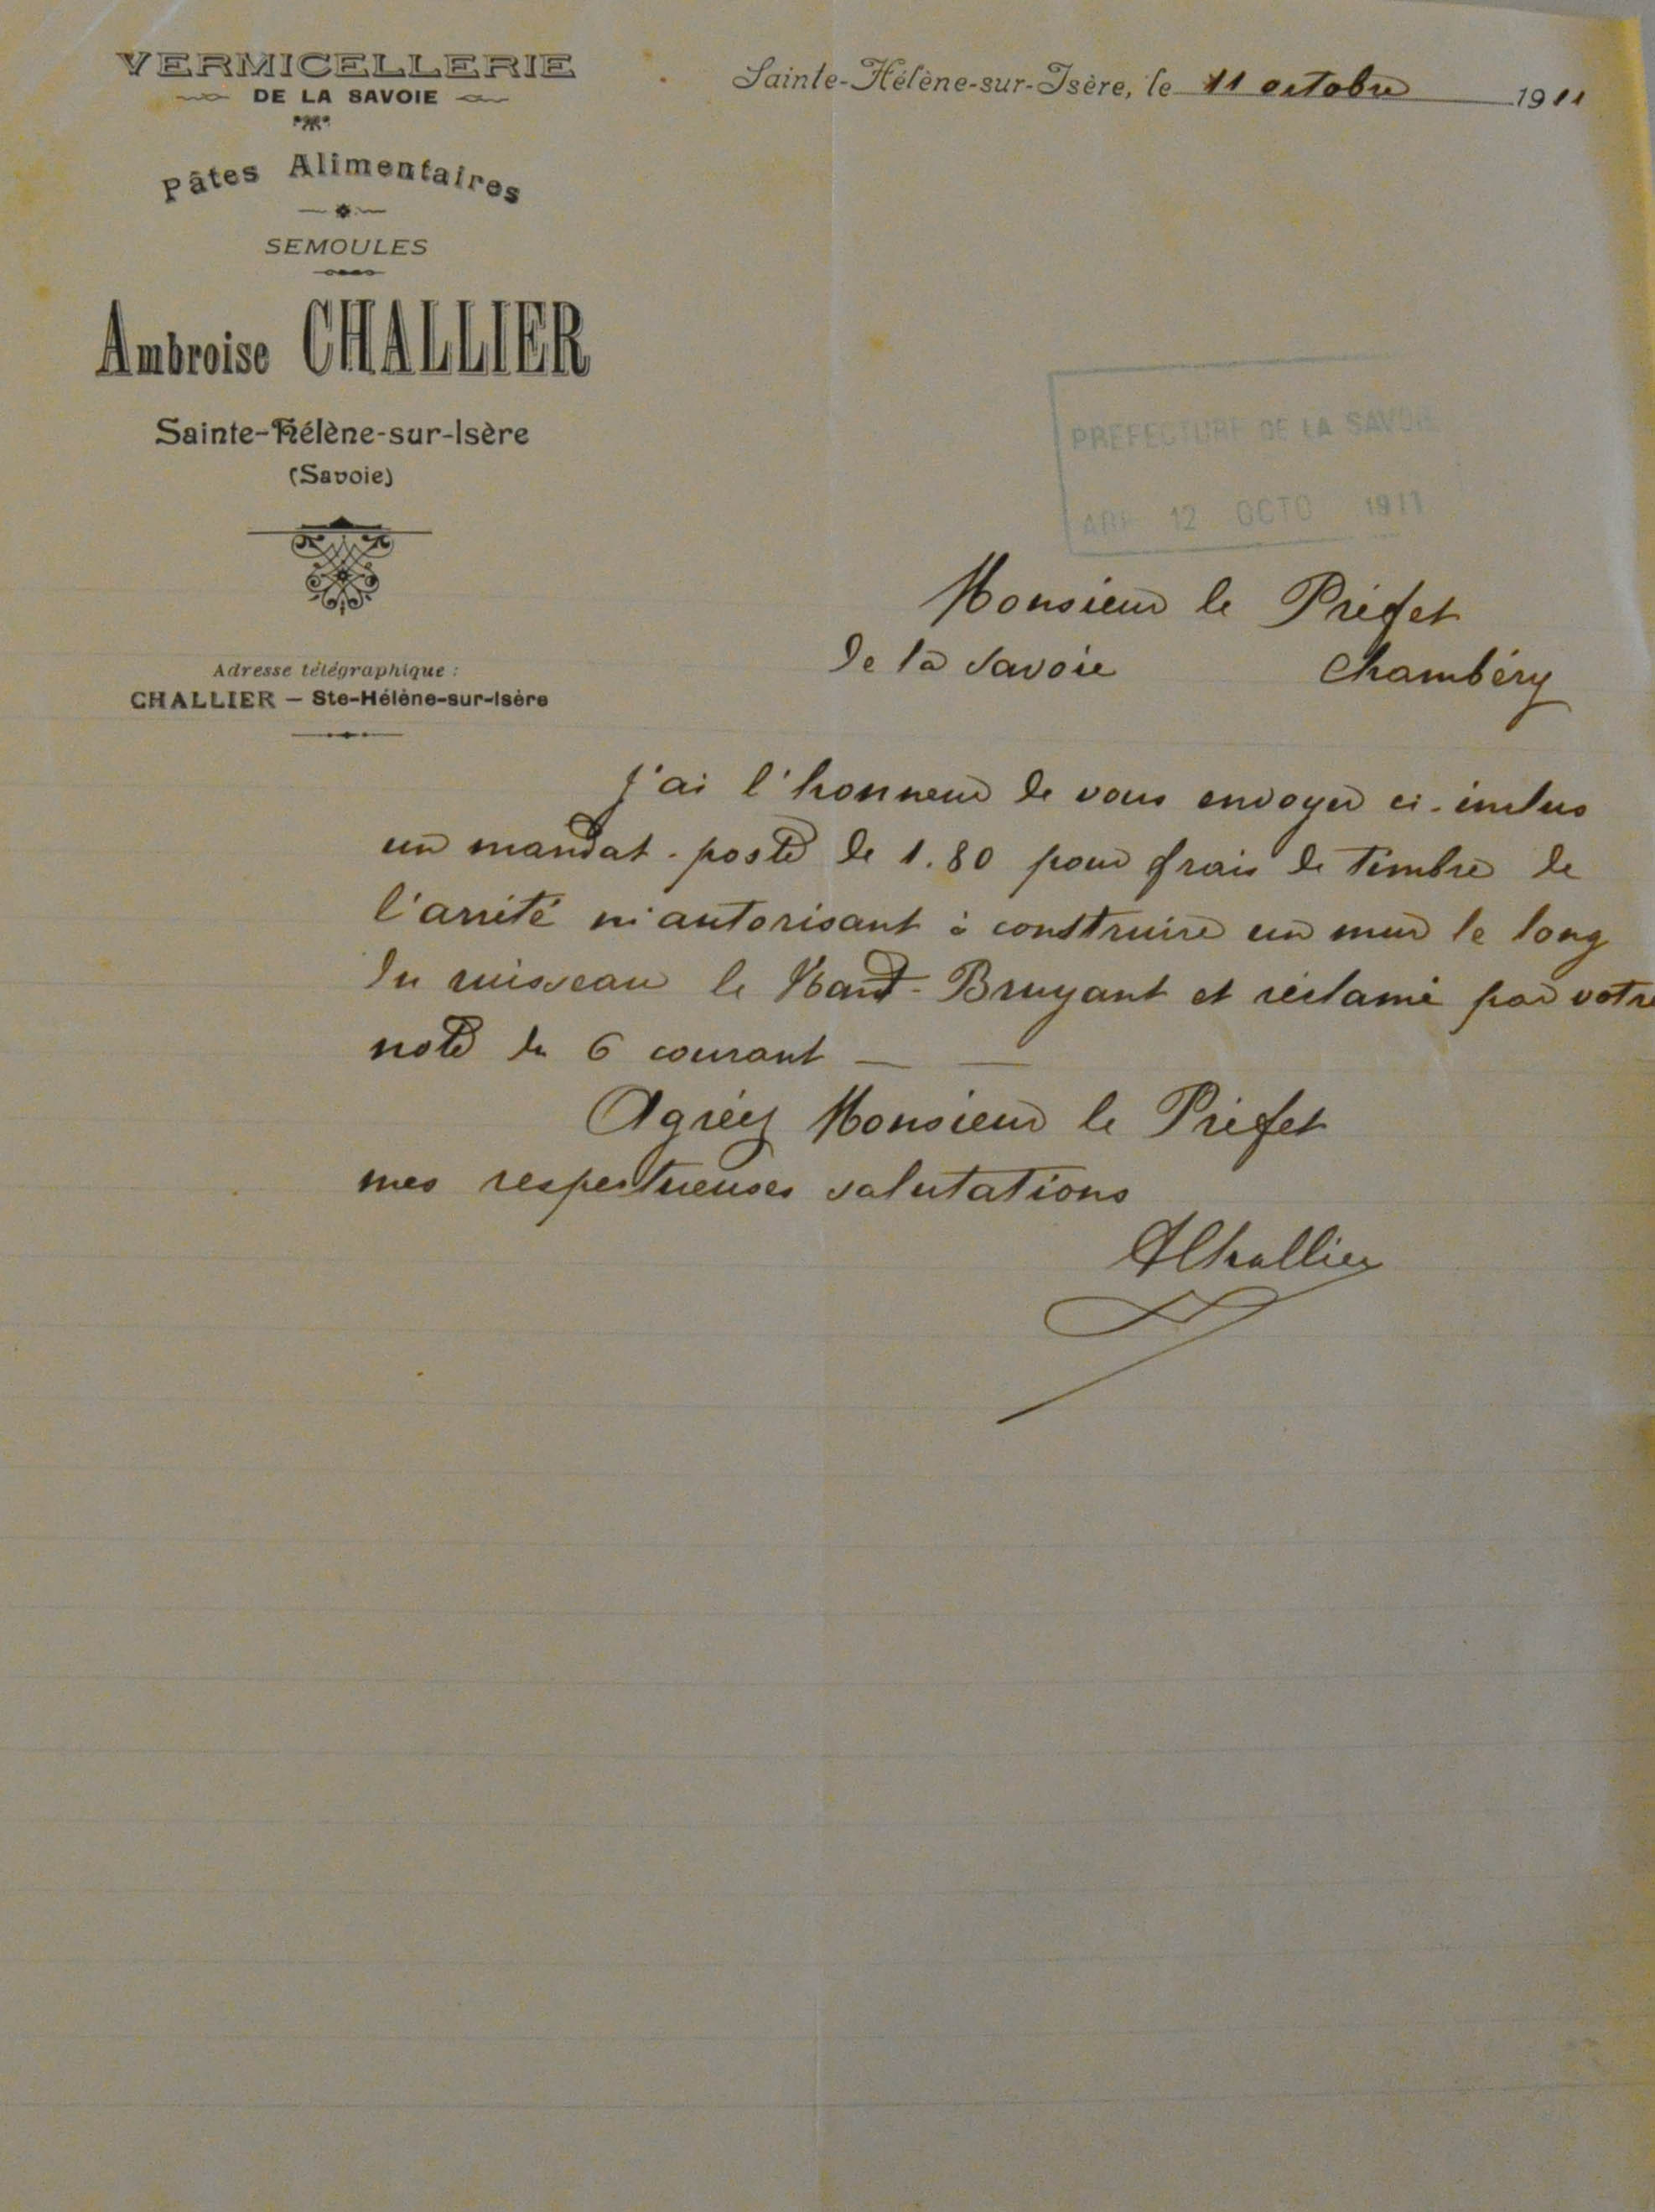 VERMICELLERIE
DE LA SAVOIE
Pâtes Alimentaires
SEMOULES
Ambroise CHALLIER
Sainte-Hélène-sur-Isère
(Savoie)
Adresse télégraphique :
CHALLIER — Ste-Hélène-sur-Isère
Sainte-Hélène-sur-Isère, le 11 octobre 1911
PREFECTURE DE LA SAVOIE
ARR 12 OCTO 1911
Monsieur le Préfet
de la Savoie Chambéry
J'ai l'honneur de vous envoyer ci-inclus
un mandat-poste de 1.80 pour frais de timbre de
l'arrêté m'autorisant à construire un mur le long
du ruisseau le Nant-Bruyant et réclamé par votre
note du 6 courant — —
Agréez Monsieur le Préfet
mes respectueuses salutations
AChallier